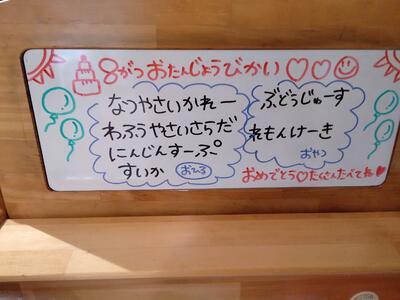 8がつおたんじょうびかい♡♡
なつやさいかれー
わふうやさいさらだ
にんじんすーぷ
すいか おひる
ぶどうじゅーす
れもんけーき
おやつ
おめでとう♡たくさんたべてね♥